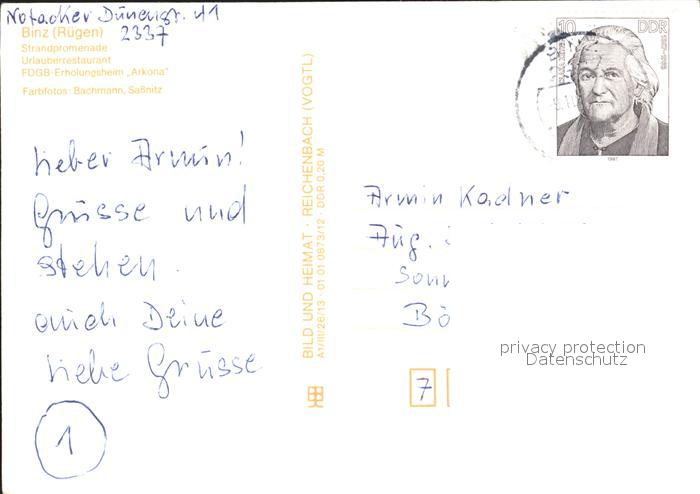 Notacker Dünenstr. 41
2337
Binz (Rügen)
Strandpromenade
Urlauberrestaurant
FDGB-Erholungsheim „Arkona"
Farbfotos: Bachmann, Saßnitz
Lieber Armin!
Grüsse und
stehen.
auch Deine
liebe Grüsse
1
BILD UND HEIMAT · REICHENBACH (VOGTL)
A1/III/26/13 · 01 01 0873/12 · DDR 0,20 M
10 DDR
1987
Armin Kadner
Aug.
Sonn
Bö
7
privacy protection
Datenschutz